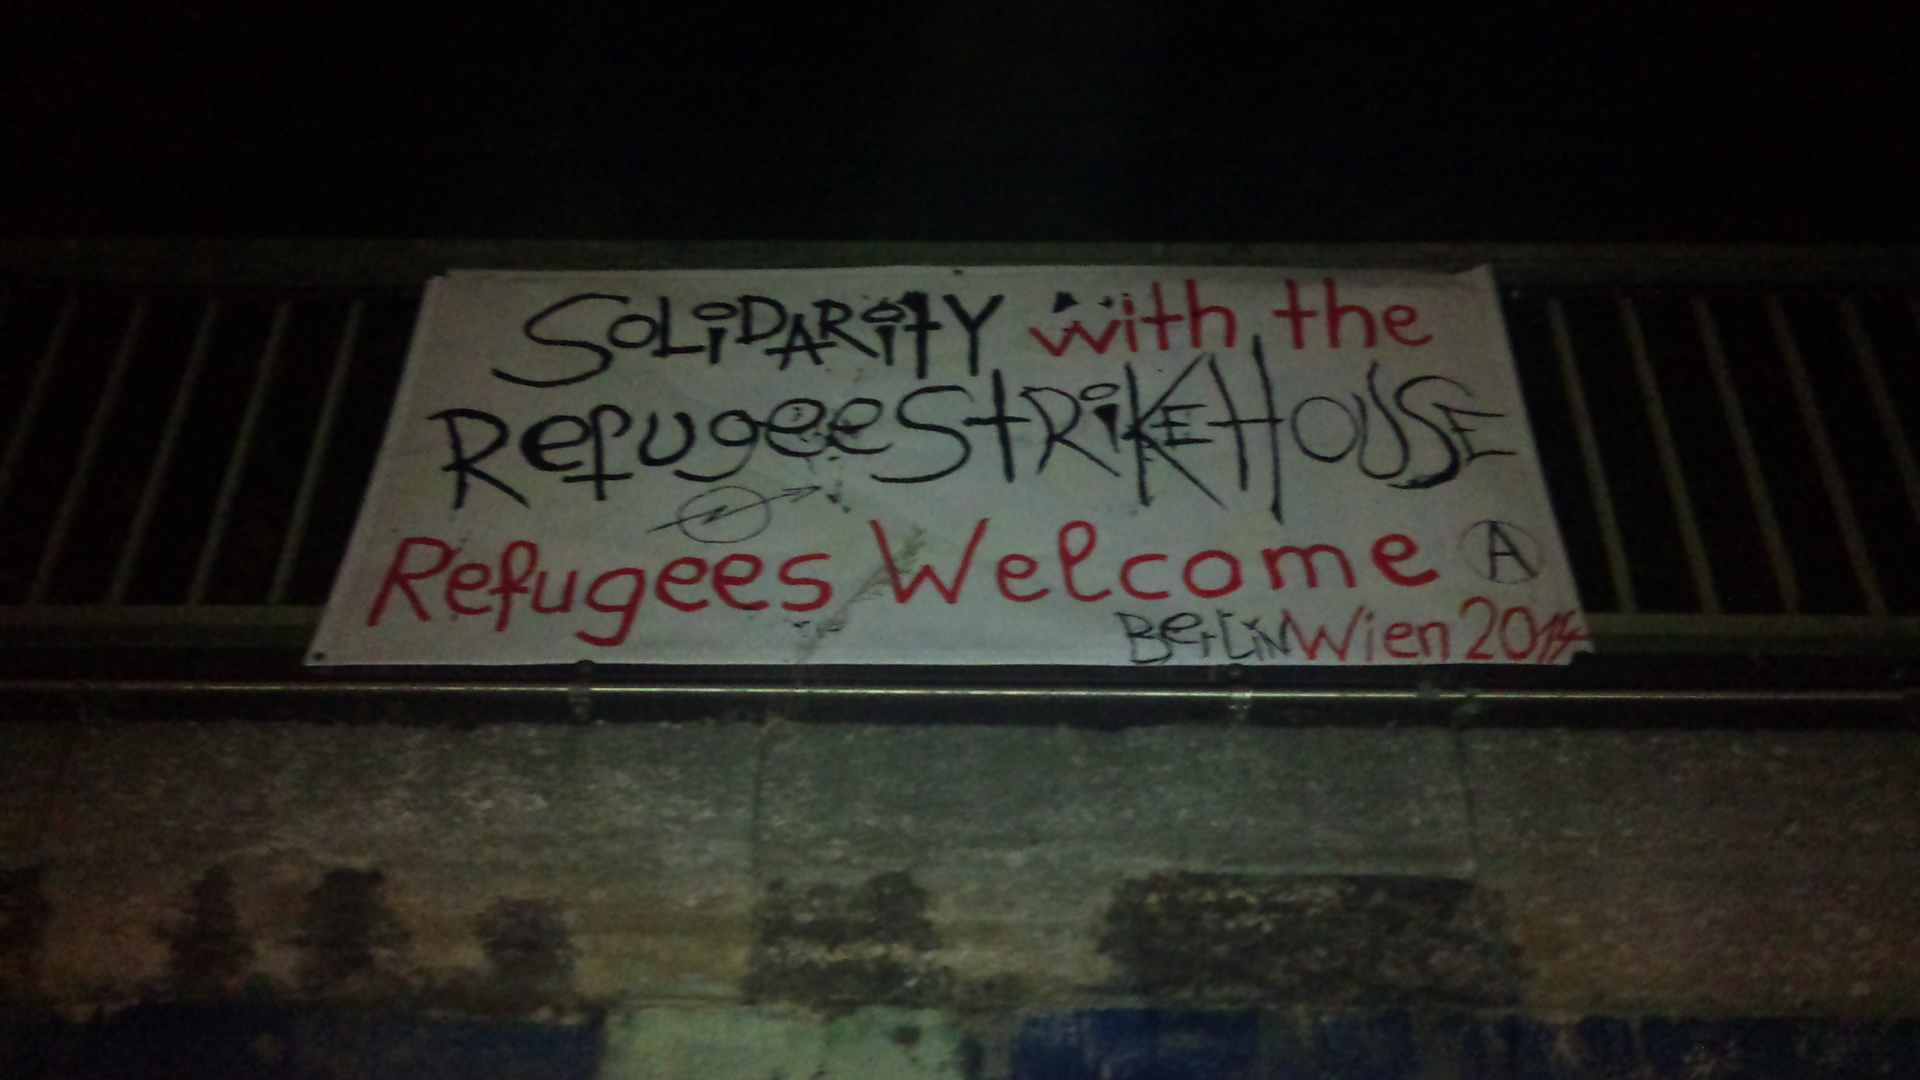 SOLiDARitY with the
RefugeeStRiKEHOUSE
Refugees Welcome A
BerLiN Wien 2014